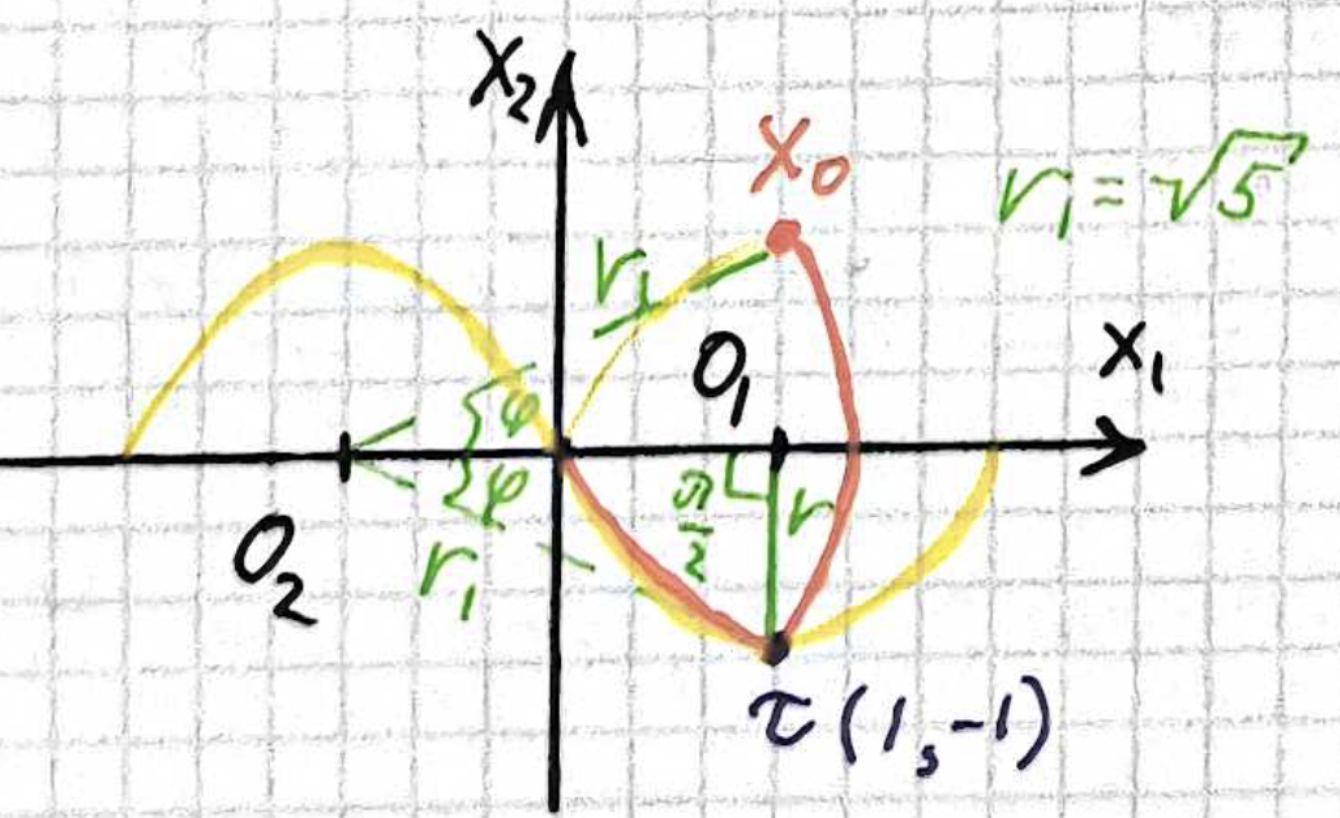 X₂
X₀
r₁ = √5
r₁
O₁
X₁
φ
φ
π/2
r
O₂
r₁
τ(1,-1)